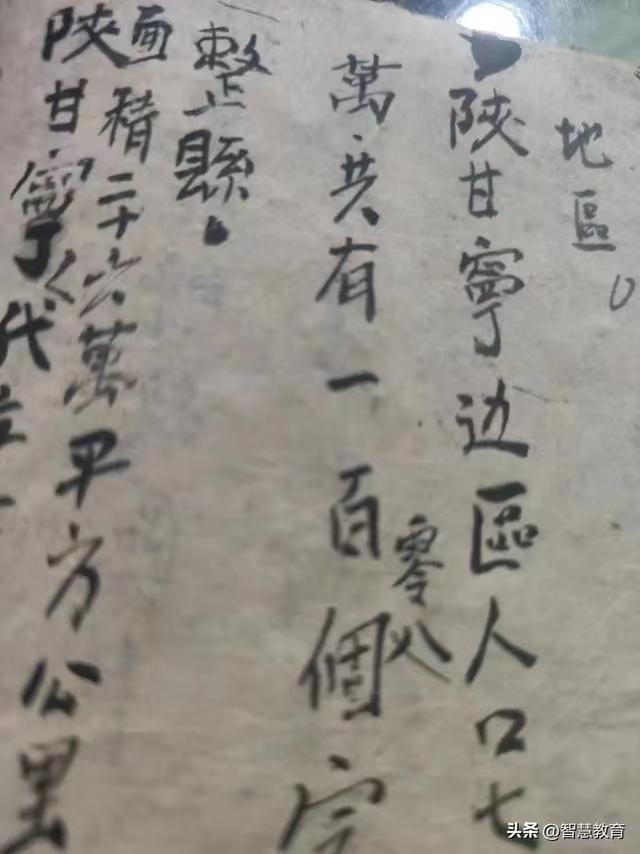 地區。
陝甘寧边區人口七
萬共有一百零八個
整縣。
面積二十六萬平方公里
陝甘寧代
头条 @智慧教育